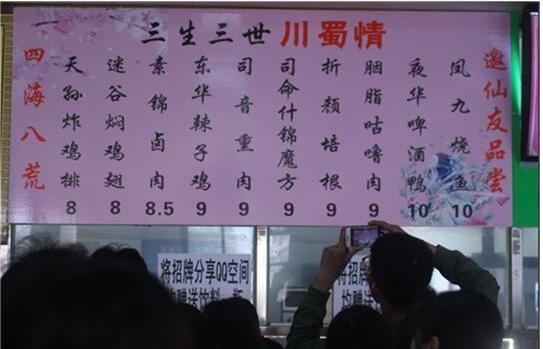 三生三世川蜀情
四海八荒
天孙炸鸡排 8
迷谷焖鸡翅 8
素锦卤肉 8.5
东华辣子鸡 9
司音熏肉 9
司命什锦魔方 9
折颜培根 9
胭脂咕噜肉 9
夜华啤酒鸭 10
凤九烧鱼 10
邀仙友品尝
将招牌分享QQ空间
均赠送饮料一瓶
将招牌
均赠